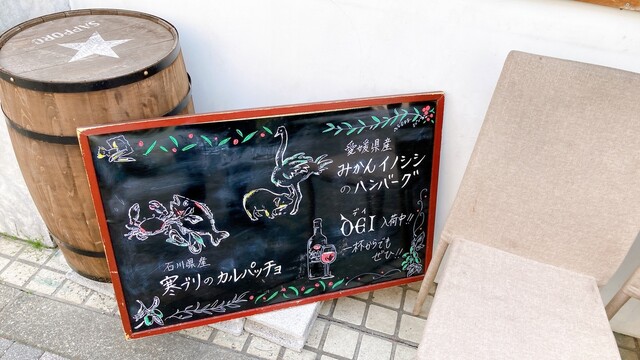 SAPPORO
愛媛県産
みかんイノシシ
のハンバーグ
デイ
DEI 入荷中!!
一杯からでも
ぜひ!!
石川県産
寒ブリのカルパッチョ